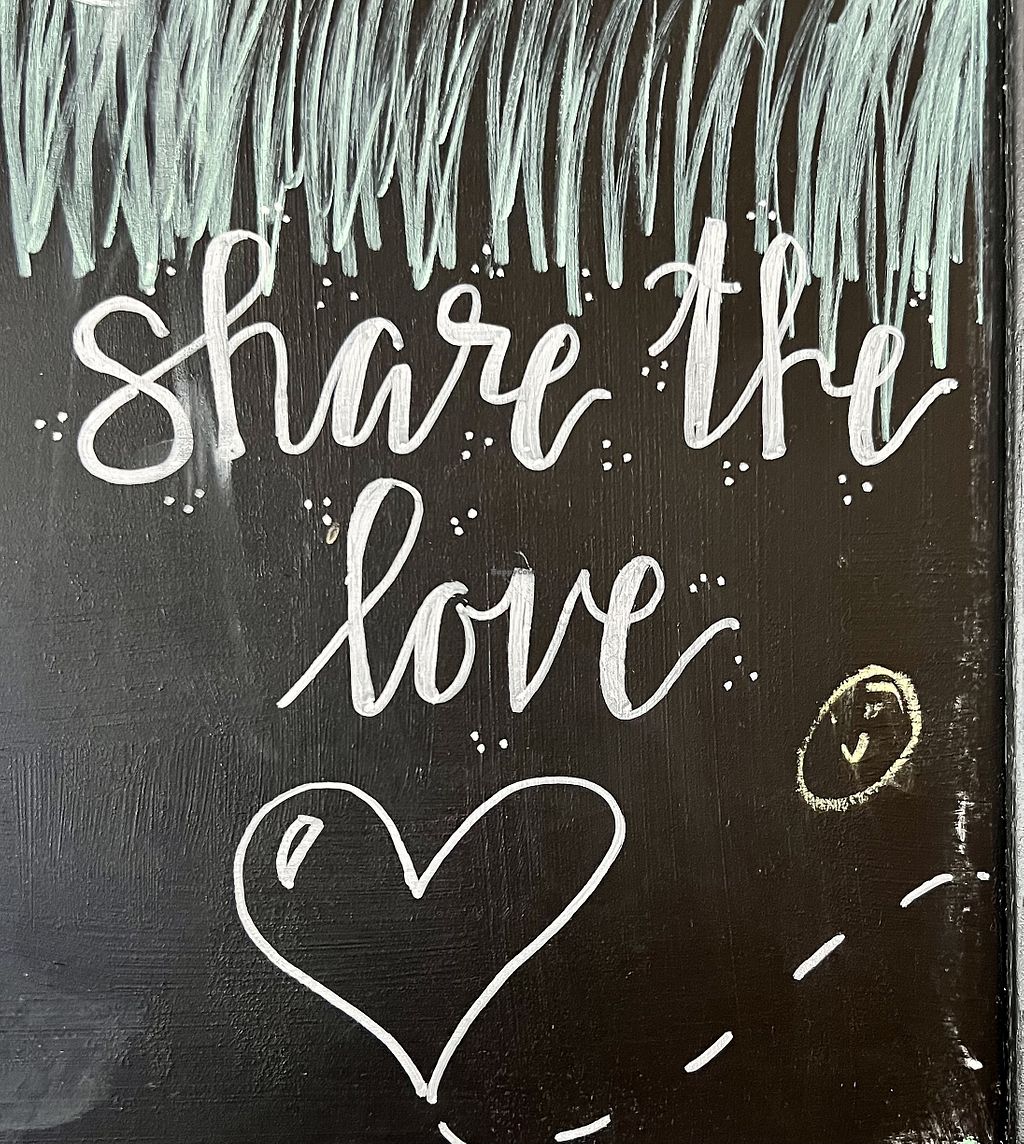 share the
love